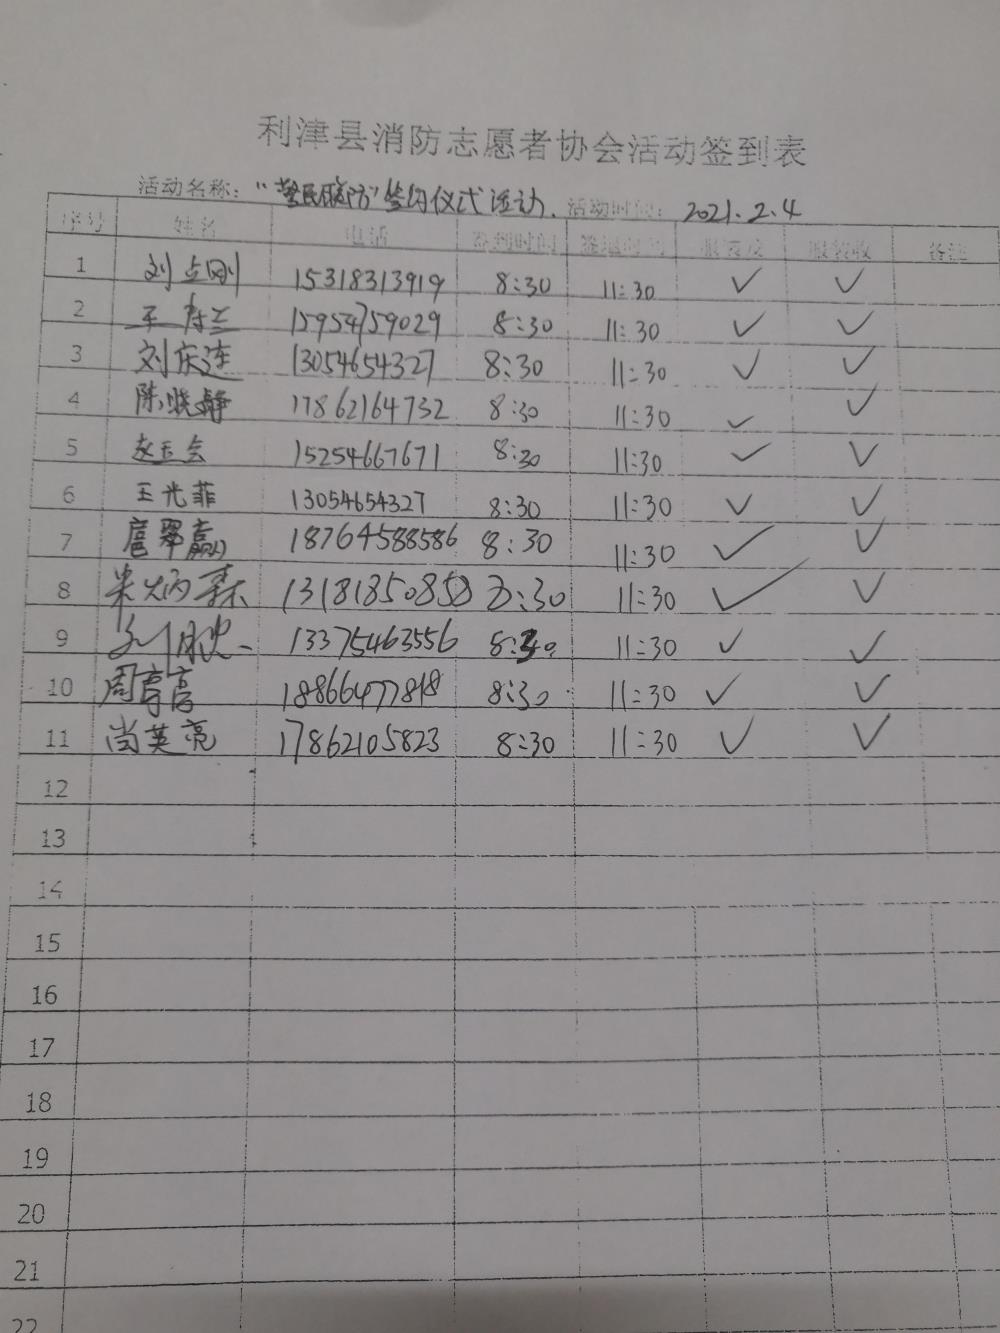 利津县消防志愿者协会活动签到表
活动名称："警民联防"签约仪式活动. 活动时间：2021.2.4
序号 姓名 电话 签到时间 签退时间 服装发 服装收 备注
1 刘占刚 15318313919 8:30 11:30 ✓ ✓
2 王 兰 15954759029 8:30 11:30 ✓ ✓
3 刘庆连 13054654327 8:30 11:30 ✓ ✓
4 陈晓静 17862164732 8:30 11:30 ✓ ✓
5 赵玉会 15254667671 8:30 11:30 ✓ ✓
6 王光菲 13054654327 8:30 11:30 ✓ ✓
7 扈翠嬴 18764588586 8:30 11:30 ✓ ✓
8 米炳森 13181350850 8:30 11:30 ✓ ✓
9 刘 13375463556 8:30 11:30 ✓ ✓
10 周 18866477818 8:30 11:30 ✓ ✓
11 尚英亮 17862105823 8:30 11:30 ✓ ✓
12
13
14
15
16
17
18
19
20
21
22